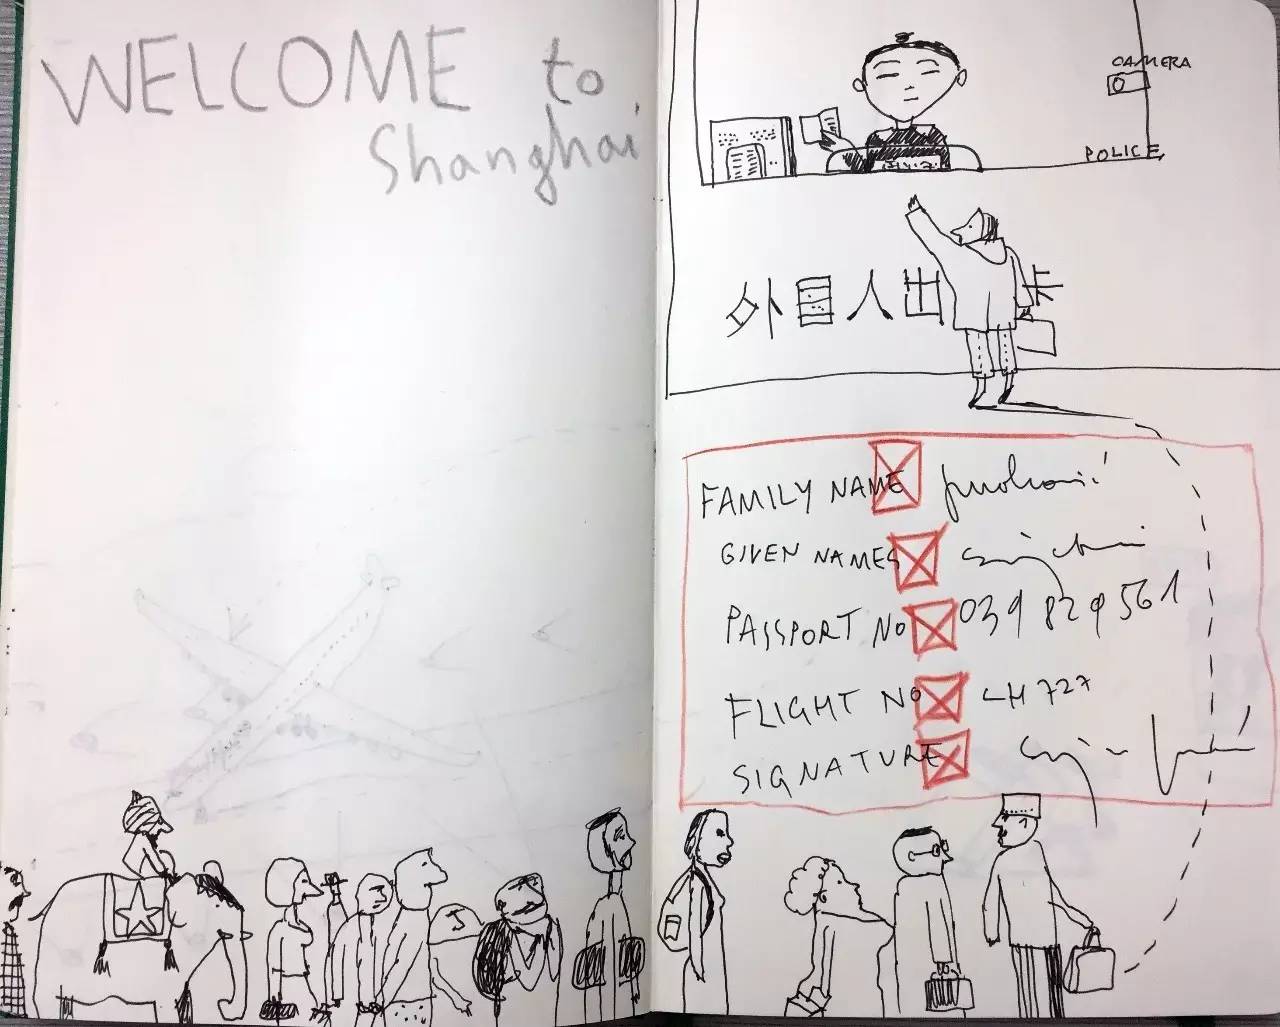 WELCOME to
Shanghai
CAMERA
POLICE
外国人出 卡
FAMILY NAME
GIVEN NAMES
PASSPORT NO 039829561
FLIGHT NO LH 727
SIGNATURE